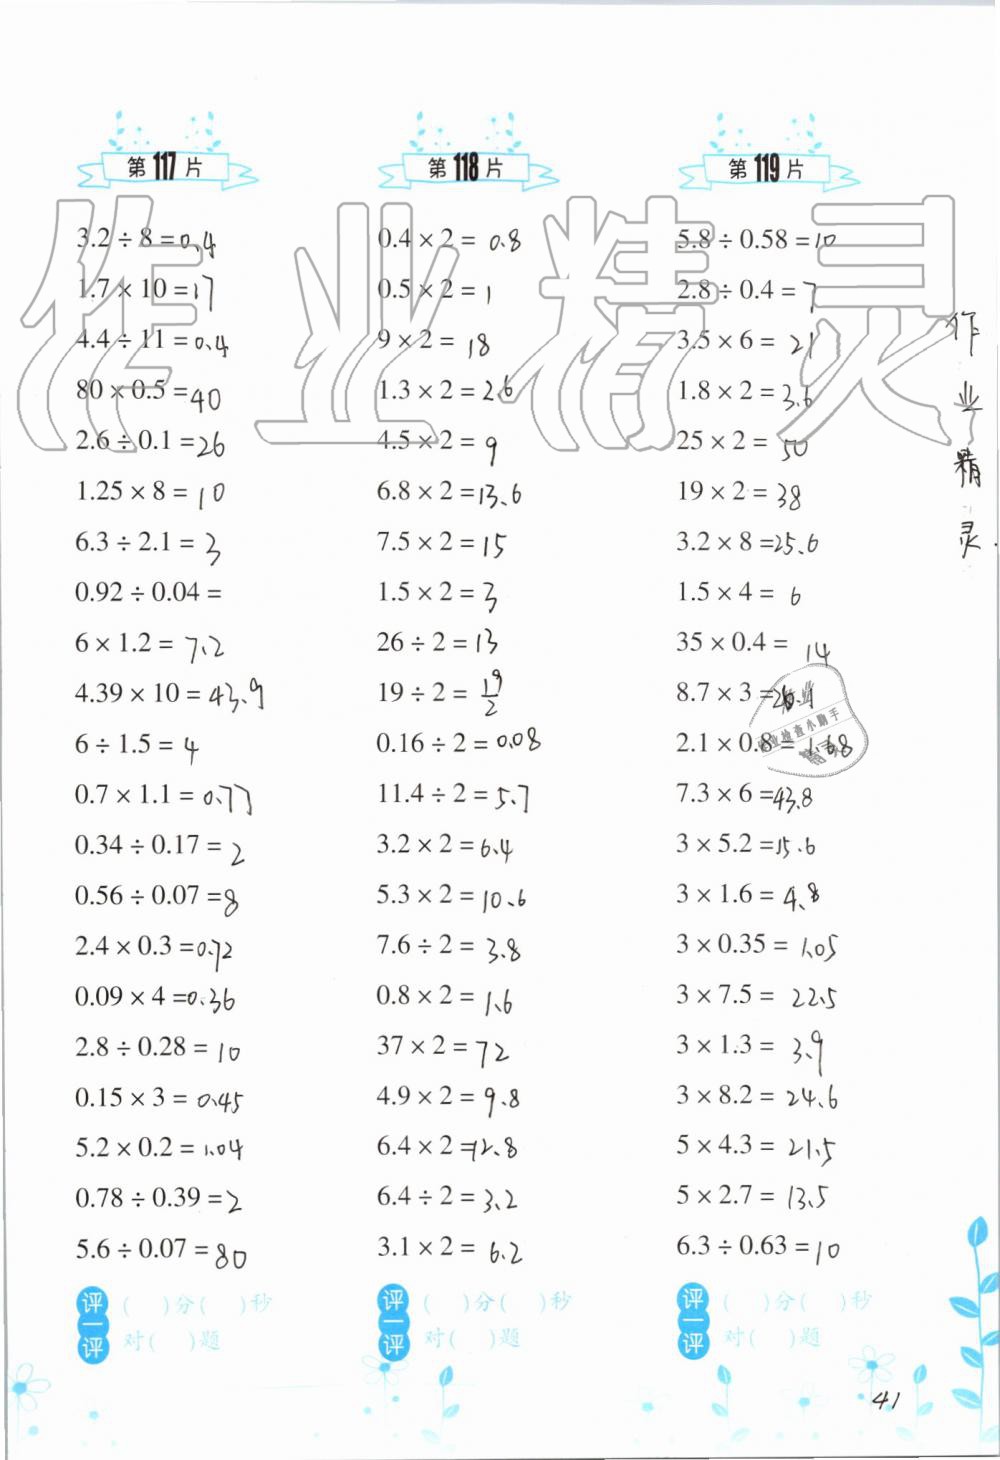 第117片
3.2÷8=0.4
1.7×10=17
4.4÷11=0.4
80×0.5=40
2.6÷0.1=26
1.25×8=10
6.3÷2.1=3
0.92÷0.04=
6×1.2=7.2
4.39×10=43.9
6÷1.5=4
0.7×1.1=0.77
0.34÷0.17=2
0.56÷0.07=8
2.4×0.3=0.72
0.09×4=0.36
2.8÷0.28=10
0.15×3=0.45
5.2×0.2=1.04
0.78÷0.39=2
5.6÷0.07=80
评一评
( )分( )秒
对( )题
第118片
0.4×2=0.8
0.5×2=1
9×2=18
1.3×2=2.6
4.5×2=9
6.8×2=13.6
7.5×2=15
1.5×2=3
26÷2=13
19÷2=19/2
0.16÷2=0.08
11.4÷2=5.7
3.2×2=6.4
5.3×2=10.6
7.6÷2=3.8
0.8×2=1.6
37×2=72
4.9×2=9.8
6.4×2=12.8
6.4÷2=3.2
3.1×2=6.2
评一评
( )分( )秒
对( )题
第119片
5.8÷0.58=10
2.8÷0.4=7
3.5×6=21
1.8×2=3.6
25×2=50
19×2=38
3.2×8=25.6
1.5×4=6
35×0.4=14
8.7×3=26.1
2.1×0.8=1.68
7.3×6=43.8
3×5.2=15.6
3×1.6=4.8
3×0.35=1.05
3×7.5=22.5
3×1.3=3.9
3×8.2=24.6
5×4.3=21.5
5×2.7=13.5
6.3÷0.63=10
评一评
( )分( )秒
对( )题
作业精灵
作业精灵
作业检查小助手
41